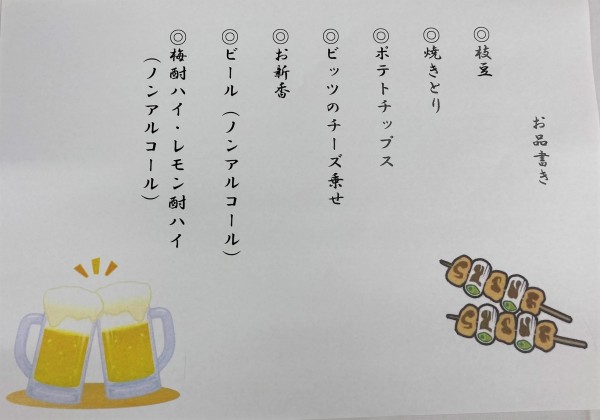 お品書き
◎枝豆
◎焼きとり
◎ポテトチップス
◎ビッツのチーズ乗せ
◎お新香
◎ビール（ノンアルコール）
◎梅酎ハイ・レモン酎ハイ
（ノンアルコール）